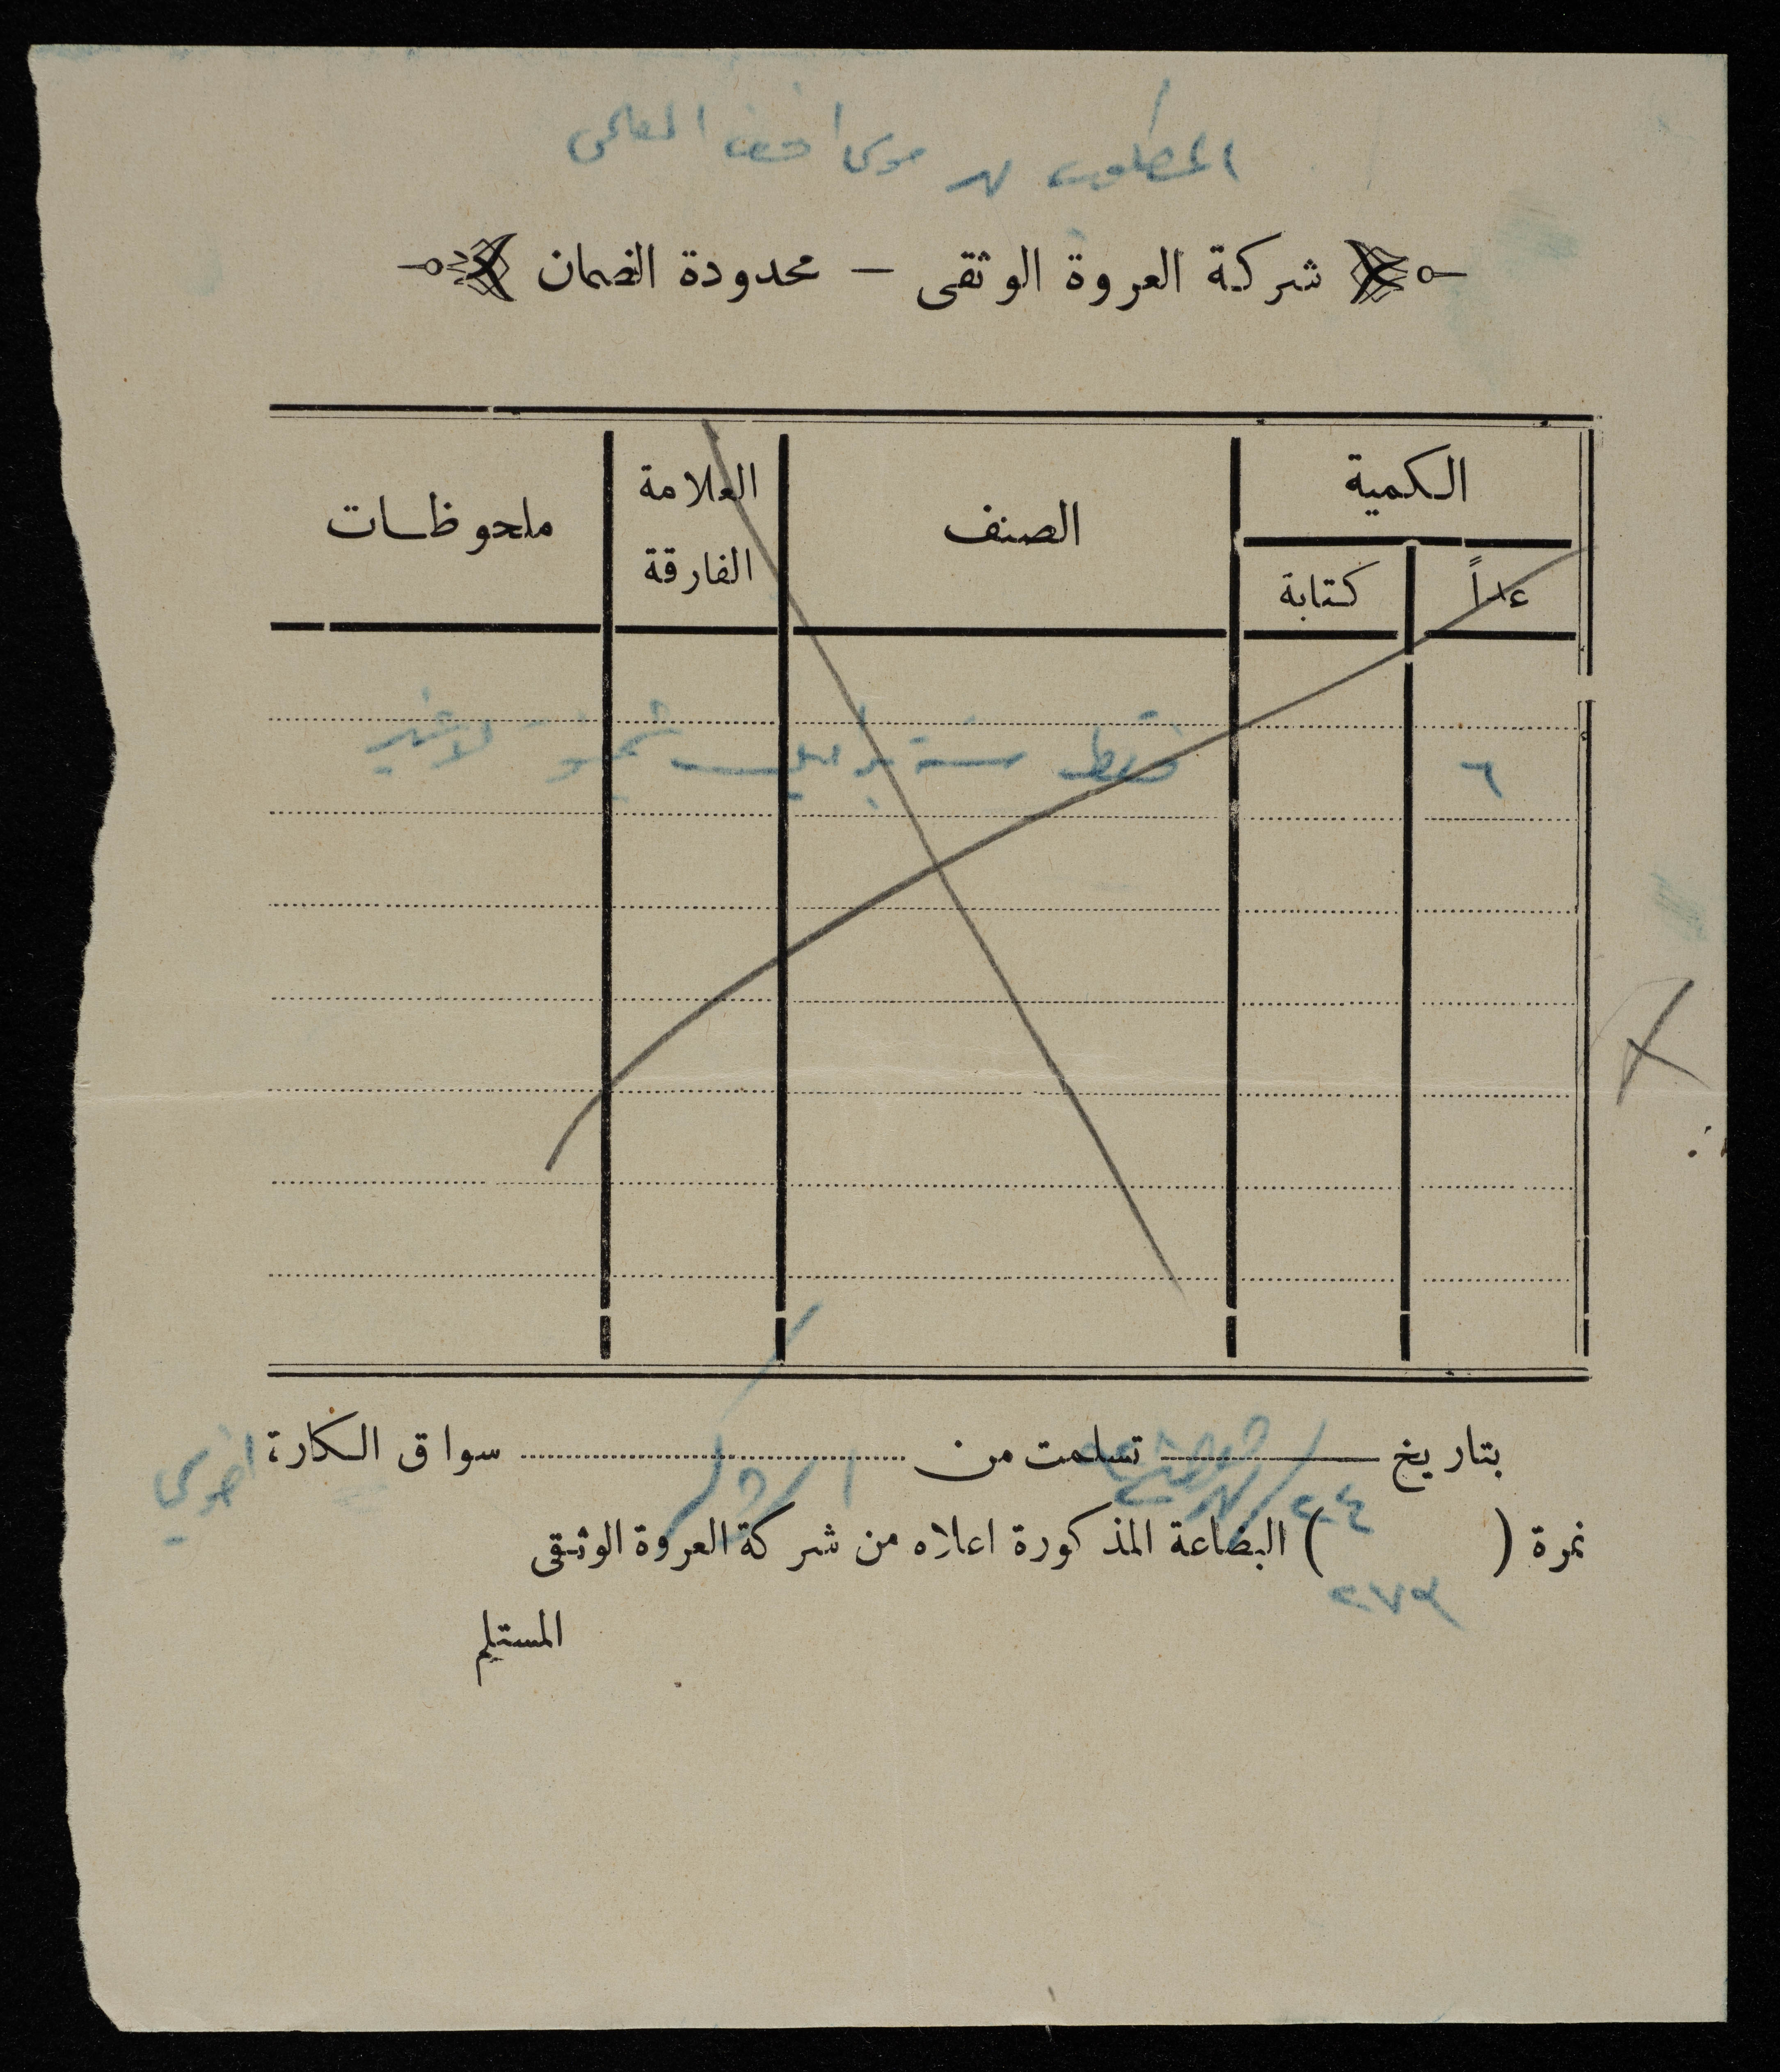 المطلوب من موسى افندي العلمي
شركة العروة الوثقى — محدودة الضمان
الكمية
عداً
كتابة
الصنف
العلامة الفارقة
ملحوظات
٦
فقط ستة براميل
بتاريخ تسلمت من سواق الكارة
نمرة ( ) البضاعة المذكورة اعلاه من شركة العروة الوثقى
المستلم